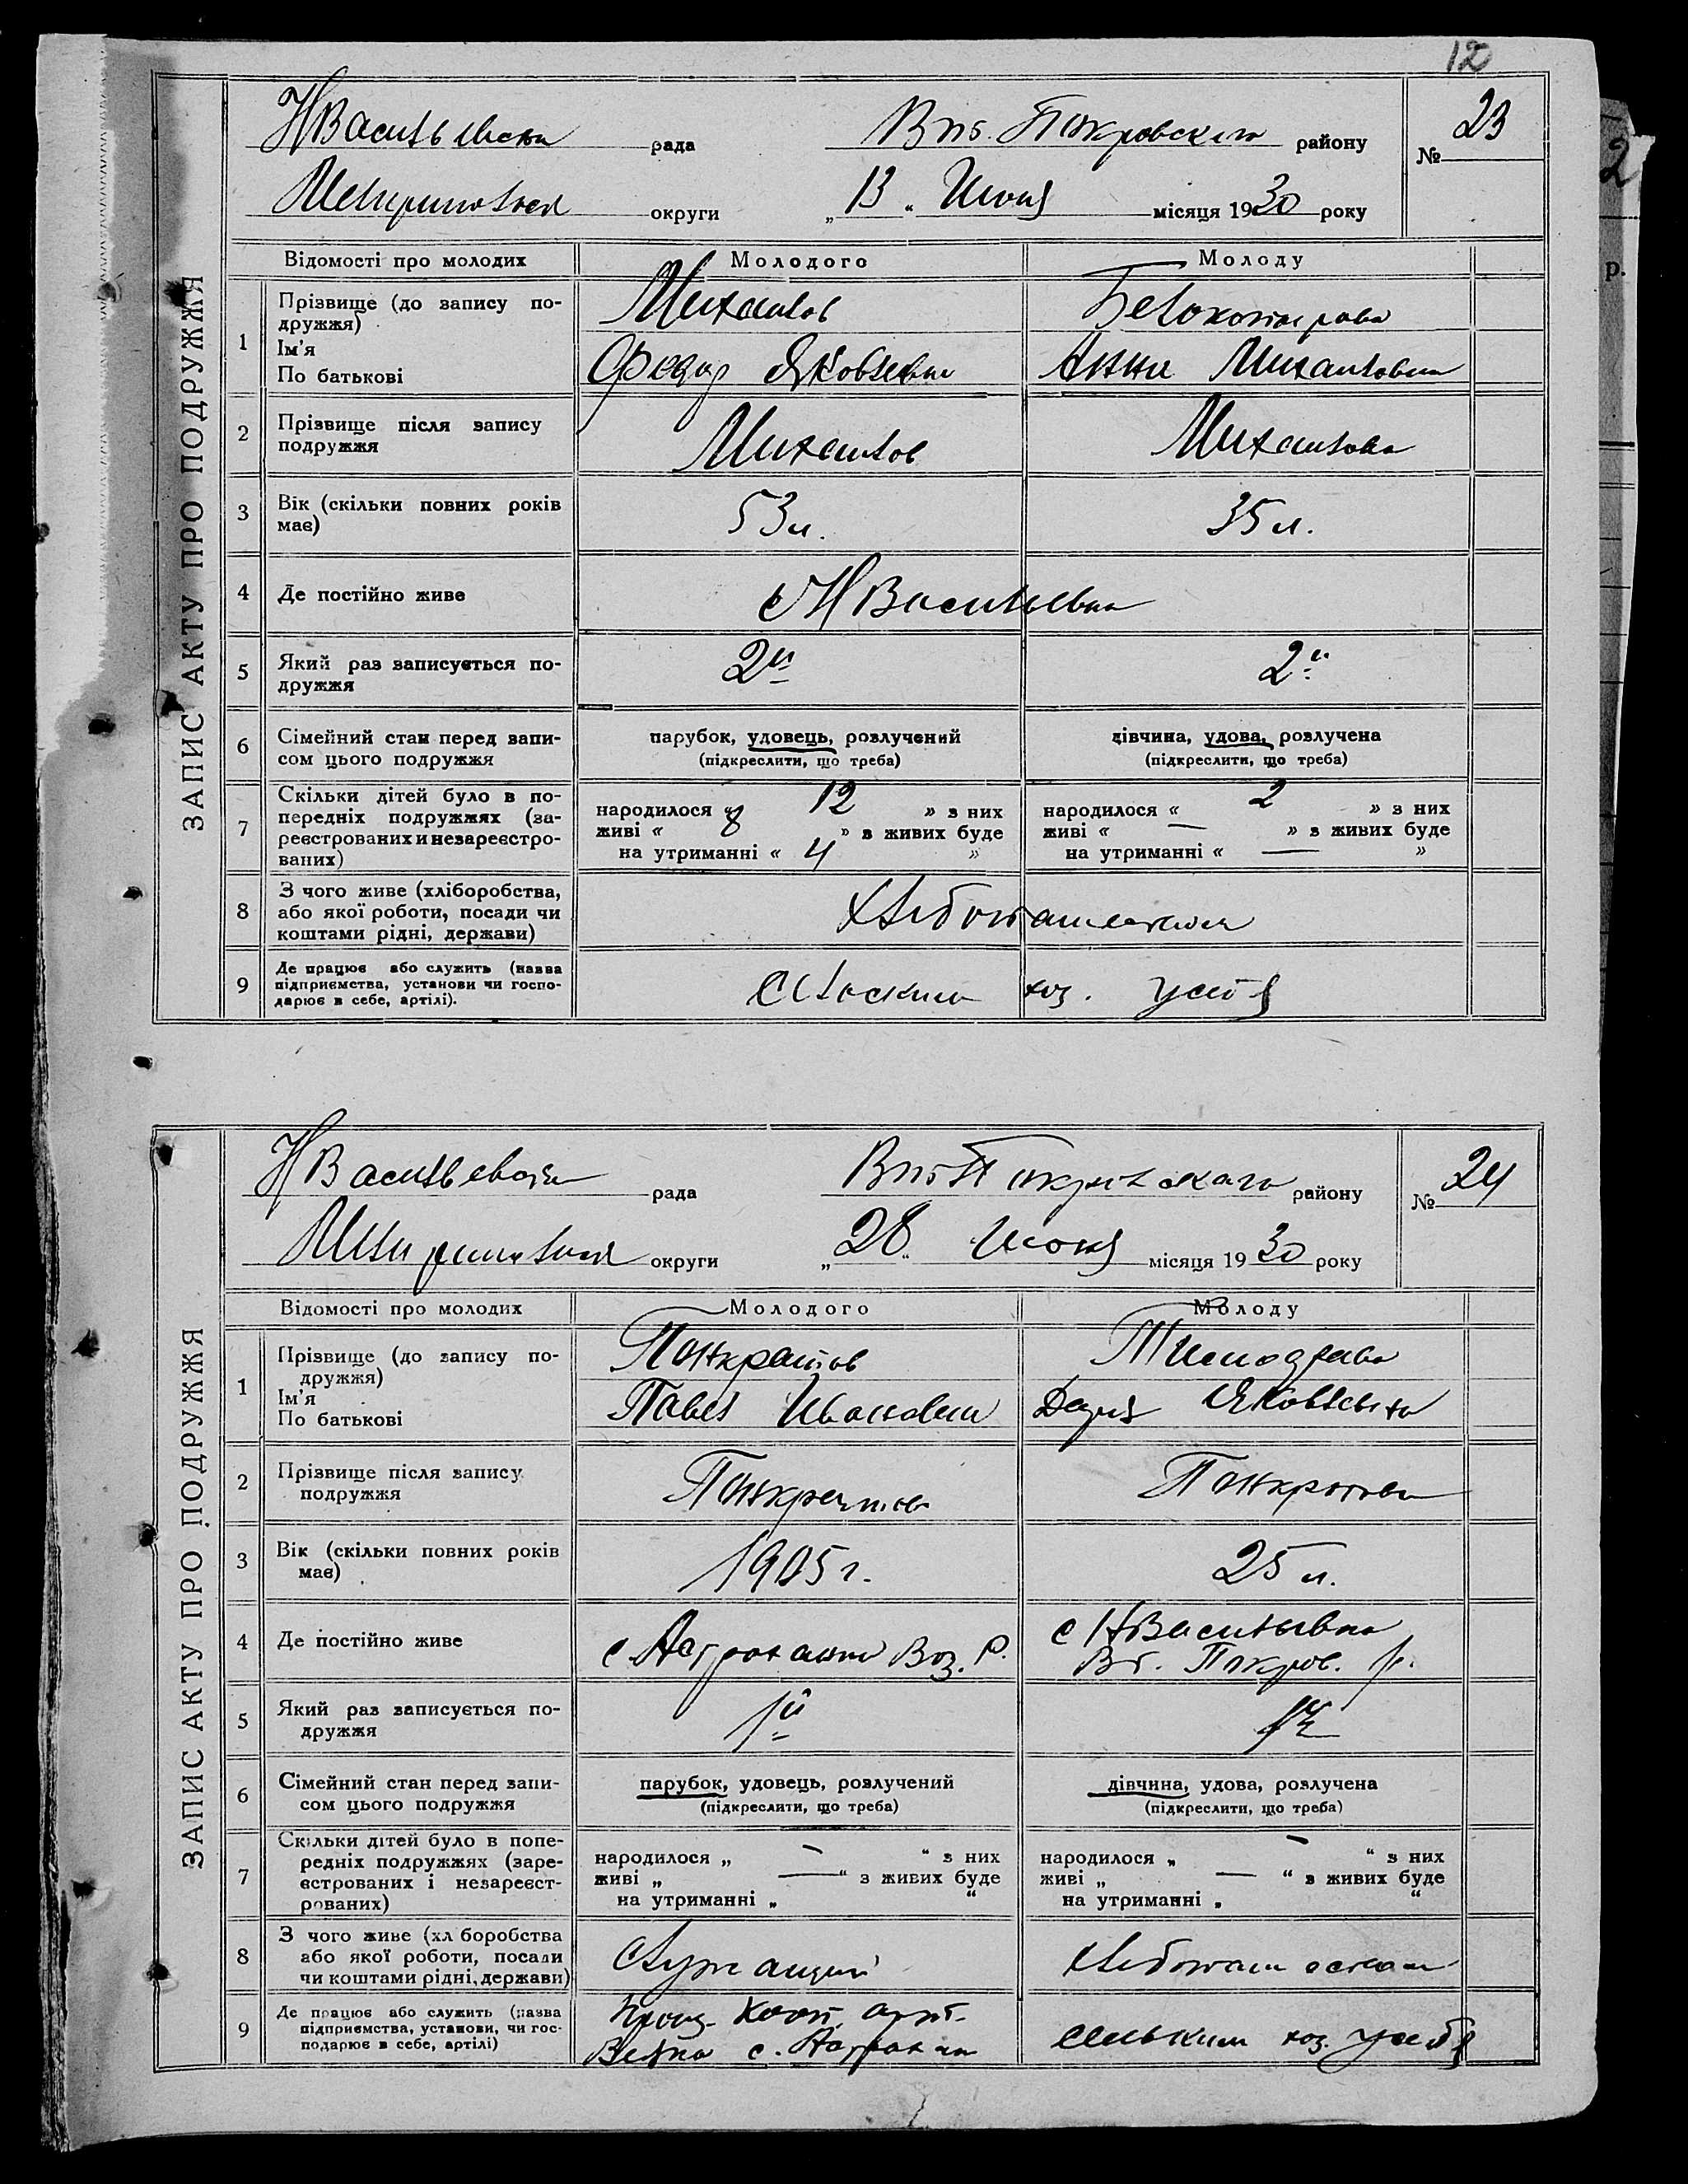 12
ЗАПИС АКТУ ПРО ПОДРУЖЖЯ
НВасильевская рада Вп5. Покровского району № 23
Мелитопольская округи „13“ Июня місяця 1930 року
Відомості про молодих Молодого Молоду
1 Прізвище (до запису по-
дружжя)
Ім'я
По батькові
Михайлов Белоконы рова
Федор Яковлевич Анна Михайловна
2 Прізвище після запису
подружжя
Михайлов Михайлова
3 Вік (скільки повних років
має)
53 л. 35 л.
4 Де постійно живе
с НВасильевка
5 Який раз записується по-
дружжя
2й 2й
6 Сімейний стан перед запи-
сом цього подружжя
парубок, удовець, розлучений дівчина, удова, розлучена
(підкреслити, що треба) (підкреслити, що треба)
7 Скільки дітей було в по-
передніх подружжях (за-
реєстрованих и незареєстро-
ваних)
народилося « 12 » з них народилося « 2 » з них
живі « 8 » з живих буде живі « — » з живих буде
на утриманні « 4 » на утриманні « — »
8 З чого живе (хліборобства,
або якої роботи, посади чи
коштами рідні, держави)
Хлебопашеством
9 Де працює або служить (назва
підприємства, установи чи госпо-
дарює в себе, артілі).
сельским хоз.
ЗАПИС АКТУ ПРО ПОДРУЖЖЯ
НВасильевская рада Покровского району № 24
Мелитопольская округи „28“ Июня місяця 1930 року
Відомості про молодих Молодого Молоду
1 Прізвище (до запису по-
дружжя)
Ім'я
По батькові
Панкратов
Павел Иванович Дарья Яковлевна
2 Прізвище після запису
подружжя
Панкратов Панкратова
3 Вік (скільки повних років
має)
1905 г. 25 л.
4 Де постійно живе
с Астраханка Воз. Р. с НВасильевка
Вб. Покров. р.
5 Який раз записується по-
дружжя
1й 1й
6 Сімейний стан перед запи-
сом цього подружжя
парубок, удовець, розлучений дівчина, удова, розлучена
(підкреслити, що треба) (підкреслити, що треба)
7 Скільки дітей було в попе-
редніх подружжях (заре-
єстрованих і незареєст-
рованих)
народилося „ — “ з них народилося „ — “ з них
живі „ — “ з живих буде живі „ — “ з живих буде
на утриманні „ “ на утриманні „ “
8 З чого живе (хл боробства
або якої роботи, посади
чи коштами рідні, держави)
Служащий Хлебопашеством
9 Де працює або служить (назва
підприємства, установи, чи гос-
подарює в себе, артілі)
Кооп. арт.
с. Астраханка сельским хоз.